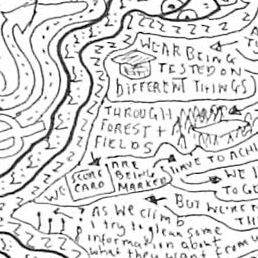 WE ARE BEING
TESTED ON
DIFFERENT THINGS
THROUGH
FOREST +
FIELDS
WE
SCORE
CARD
ARE
BEING
MARKED
HAVE TO ACHI
WE
TO GE
BUT WE'RE
AS WE CLIMB
I try to glean some
information about
what they want from u